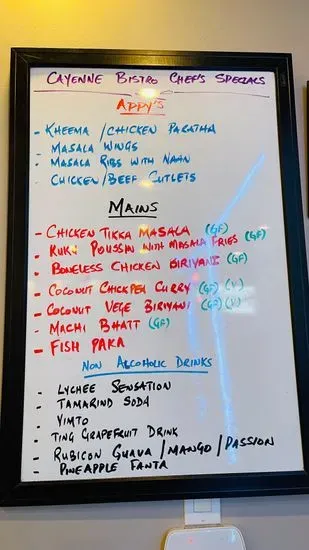 CAYENNE BISTRO CHEF'S SPECIALS
APPY'S
- KHEEMA / CHICKEN PARATHA
- MASALA WINGS
- MASALA RIBS WITH NAAN
- CHICKEN/BEEF CUTLETS
MAINS
- CHICKEN TIKKA MASALA (GF)
- KUKU POUSSIN WITH MASALA FRIES (GF)
- BONELESS CHICKEN BIRIYANI (GF)
- COCONUT CHICKPEA CURRY (GF) (V)
- COCONUT VEGE BIRIYANI (GF) (V)
- MACHI BHATT (GF)
- FISH PAKA
NON ALCOHOLIC DRINKS
- LYCHEE SENSATION
- TAMARIND SODA
- VIMTO
- TING GRAPEFRUIT DRINK
- RUBICON GUAVA / MANGO / PASSION
- PINEAPPLE FANTA